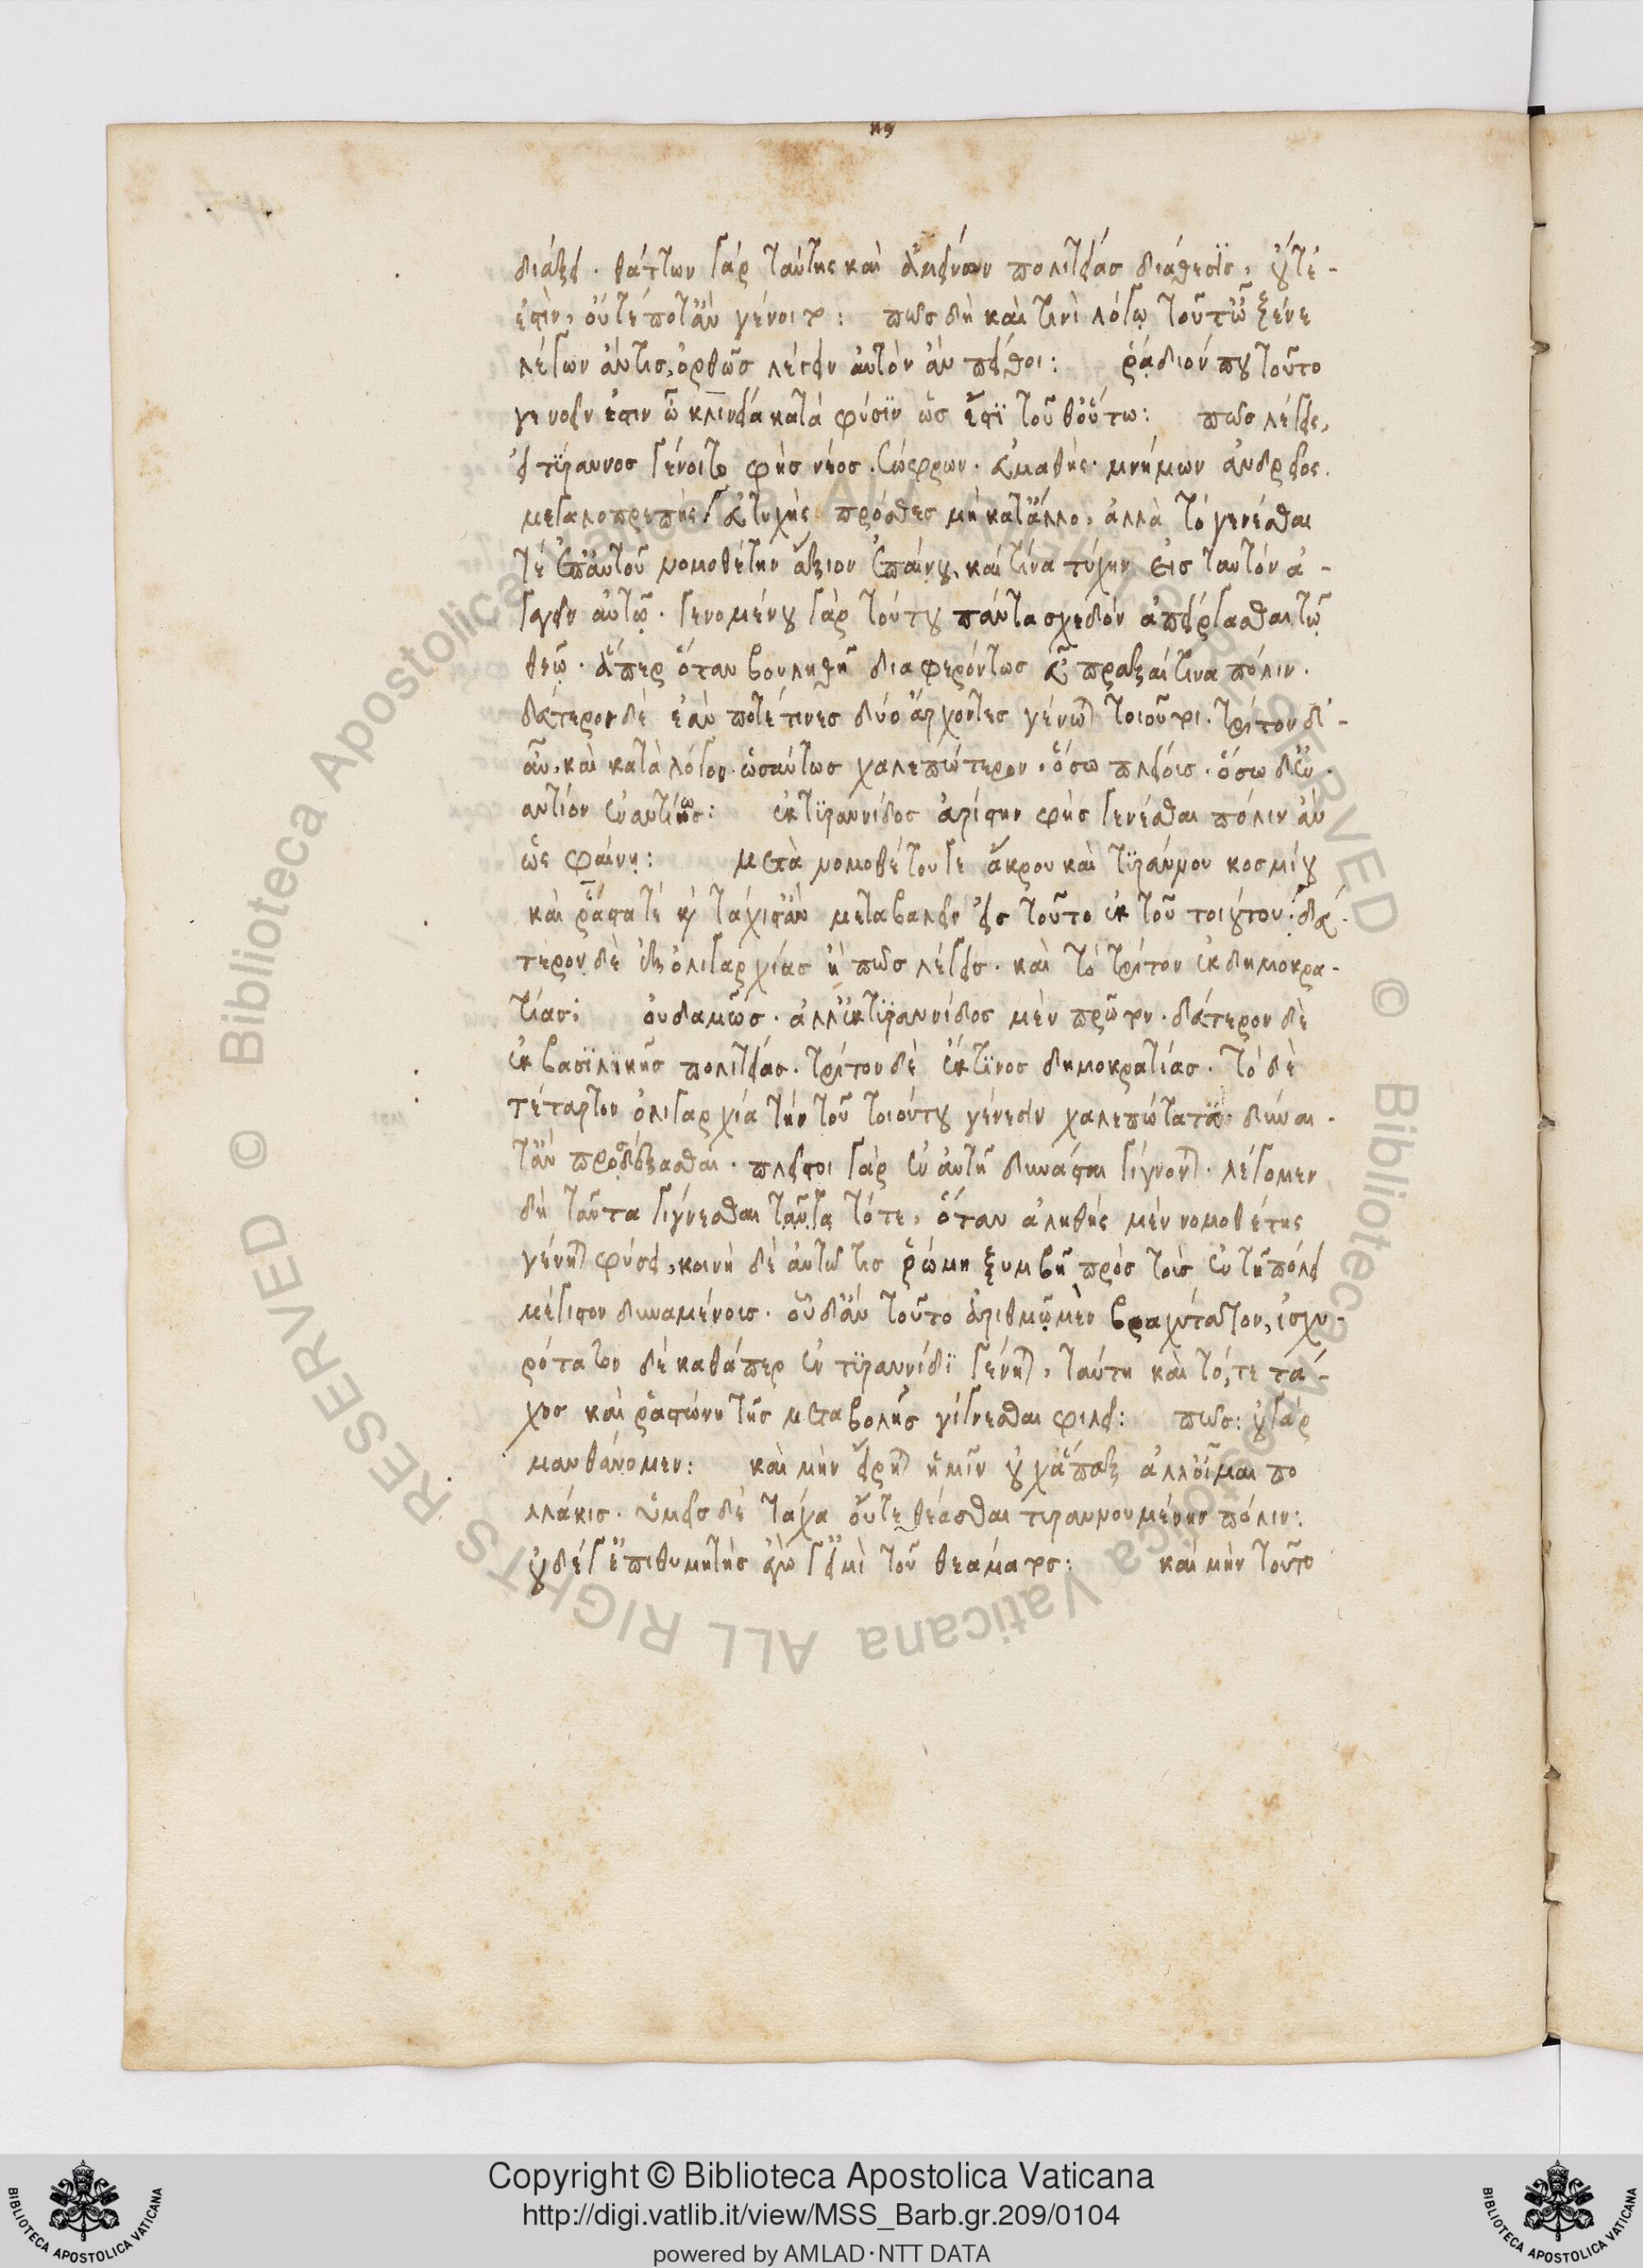 διάξει. θάττων γάρ ταύτης καὶ ἀμείνων πολιτείας διάθεσϊς, οὔτέ-
ἐστιν, οὔτέ ποτ' ἂν γένοιτο: πωσ δὴ καὶ τινὶ λόγω τοῦτ' ὦ ξένε
λέγων ἄντισ, ὀρθῶσ λέγειν αὑτὸν ἂν πείθοι: ῥάδιόν που τοῦτο
γε νοεῖν ἐστιν ὦ κλεινία κατὰ φύσϊν ὡσ ἔστϊ τοῦθ' οὕτω: πωσ λέγεις,
εἰ τϋραννοσ γένοιτο φὴσ νέοσ. σώφρων. εὐμαθής. μνήμων ἀνδρεῖος.
μεγαλοπρεπής. εὐτυχὴς πρόσθεσ μὴ κατ' ἄλλο, ἀλλὰ τὸ γενέσθαι
τέ ἐπ' αὐτοῦ νομοθέτην ἄξιον ἐπαίνου, καί τινα τύχην εἰσ ταυτόν ἀ-
γαγεῖν αὐτῷ. γενομένου γὰρ τούτου πάντα σχεδόν ἀπείργασθαι τῷ
θεῷ. ἅπερ ὅταν βουληθῆ διαφερόντωσ εὖ πραξαί τινα πόλιν.
δεύτερον δὲ ἐάν ποτέ τινεσ δύο ἄρχοντες γένωνται τοιοῦτοι. τρίτον δ' -
αὖ, καὶ κατὰ λόγον. ὡσαύτωσ χαλεπώτερον, ὅσω πλείοις. ὅσω δ' ἐν.
αντίον ἐναντίως: ἐκ τϋραννίδος ἀρίστην φὴς γενέσθαι πόλιν ἂν
ὡς φαίνῃ: μετὰ νομοθέτου γε ἄκρου καὶ τϋράννου κοσμίου
καὶ ῥᾷστα τέ καὶ τάχιστ' ἂν μεταβαλεῖν εἰσ τοῦτο ἐκ τοῦ τοιούτου. δεύ-
τερον δὲ ἐξ ὀλιγαρχίασ ἢ πῶσ λέγεισ. καὶ τὸ τρίτον ἐκ δημοκρα-
τίασ: οὐδαμῶσ. ἀλλ' ἐκ τϋραννίδοσ μὲν πρῶτον. δεύτερον δὲ
ἐκ βασϊλϊκῆσ πολιτείασ. τρίτον δὲ ἔκ τϊνοσ δημοκρατίασ. τὸ δὲ
τέταρτον ὀλιγαρχία τὴν τοῦ τοιούτου γένεσιν χαλεπώτατα. δύναι-
τ' ἂν προσδέξασθαι. πλεῖστοι γὰρ ἐν αὐτῆ δυνάσται γίγνονται. λέγομεν
δὴ ταῦτα γίγνεσθαι ταῦτα τότε, ὅταν ἀληθὴς μὲν νομοθέτης
γένηται φύσει, κοινὴ δὲ αὐτῶ τισ ῥώμη ξυμβῆ πρὸσ τοὶσ ἐν τῆ πόλει
μέγιστον δυναμένοισ. οὗ δ' ἂν τοῦτο ἀριθμῷ μὲν βραχύτατον, ἰσχυ-
ρότατον δὲ καθάπερ ἐν τϋραννίδϊ γένηται, ταύτη καὶ τότε τά-
χοσ καὶ ῥαστώνη τῆσ μεταβολῆσ γίγνεσθαι φιλεῖ: πωσ: οὐ γὰρ
μανθάνομεν: καὶ μὴν εἴρηται ἡμῖν οὐχ ἅπαξ ἀλλ' οἶμαι πο
λλάκισ. ὑμεῖσ δὲ τάχα οὔτε θέασθαι τυραννουμένην πόλιν:
οὐδέ γ' ἐπιθυμητὴσ ἐγὼ γ' εἰμὶ τοῦ θεάματοσ: καὶ μὴν τοῦτο
Copyright © Biblioteca Apostolica Vaticana
http://digi.vatlib.it/view/MSS_Barb.gr.209/0104
powered by AMLAD·NTT DATA